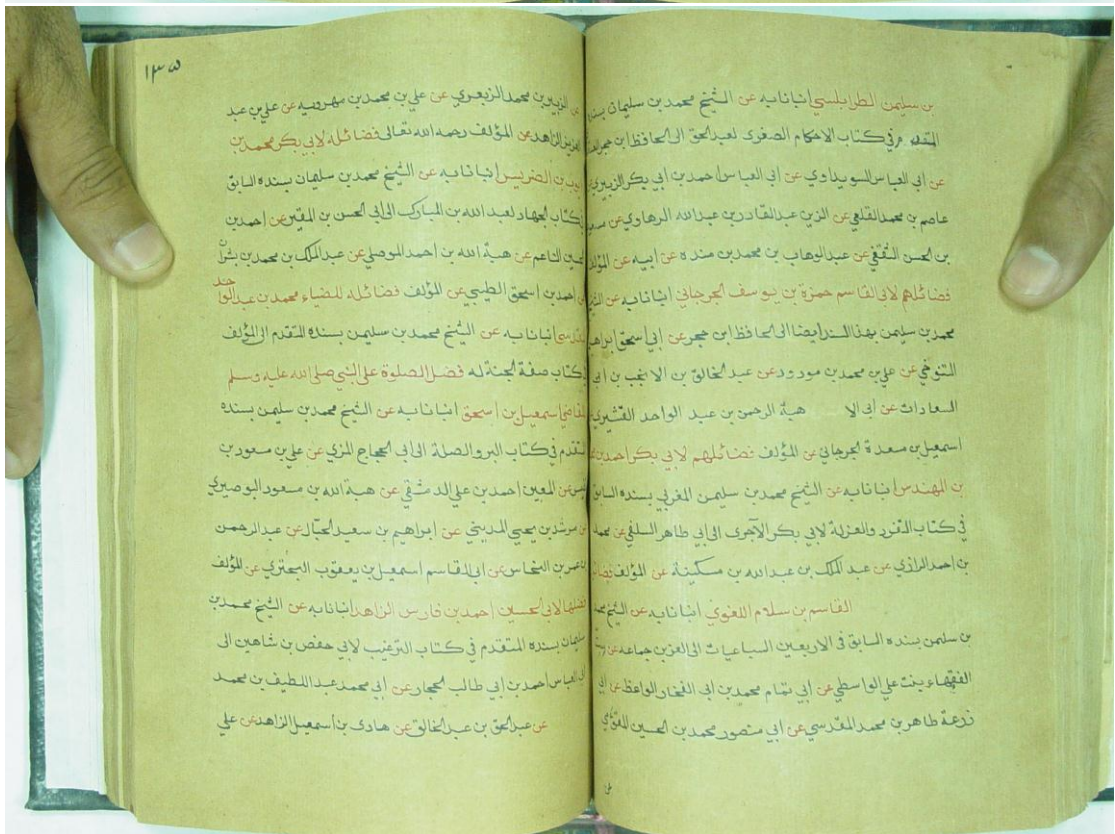 بن سليمن الطرابلسي انبانابه عن الشيخ محمد بن سليمان بسنده
المتقدم في كتاب الاحكام الصغرى لعبد الحق الى الحافظ ابن حجر
عن ابي العباس السويداوي عن ابي العباس احمد بن ابي بكر الزبيري
عاصم بن محمد القلعي عن الزين عبد القادر بن عبد الله الرهاوي عن
بن الحسن الثقفي عن عبد الوهاب بن محمد بن منده عن ابيه عن المؤلف
فضائلهم لابي القاسم حمزة بن يوسف الجرجاني انبانابه عن الشيخ
محمد بن سليمن بهذا السند ايضا الى الحافظ ابن حجر عن ابي اسحق ابراهيم
التنوخي عن علي بن محمد بن مودود عن عبد الخالق بن الانجب بن ابي
السعادات عن ابي الا هبة الرحمن بن عبد الواحد القشيري
اسمعيل بن سعدة الجرجاني عن المؤلف فضائلهم لابي بكر احمد بن
بن المهندس انبانابه عن الشيخ محمد بن سليمن المغربي بسنده السابق
في كتاب التفرد والعزلة لابي بكر الآجرى الى ابي طاهر السلفي عن محمد
بن احمد الرازي عن عبد الملك بن عبد الله بن مسكينة عن المؤلف
القاسم بن سلام اللغوي انبانابه عن الشيخ محمد
بن سليمن بسنده السابق في الاربعين السباعيات الى العز بن جماعه عن
الفقهاء بنت علي الواسطي عن ابي تمام محمد بن ابي الفخار الواعظ عن ابي
زرعة طاهر بن محمد المقدسي عن ابي منصور محمد بن الحسين المقومي
١٣٥
عن الزبير بن محمد الزبيري عن علي بن محمد بن مهرويه عن علي بن عبد
العزيز الزاهد عن المؤلف رحمه الله تعالى فضائله لابي بكر محمد بن
ايوب بن الضريس انبانابه عن الشيخ محمد بن سلمان بسنده السابق
في كتاب الجهاد لعبد الله بن المبارك الى ابي الحسن بن المقير عن احمد بن
الحسين الناعم عن هبة الله بن احمد الموصلي عن عبد الملك بن محمد بن بشران
احمد بن اسحق الطيبي عن المؤلف فضائله للضياء محمد بن عبد الواحد
المقدسي انبانابه عن الشيخ محمد بن سليمن بسنده المتقدم الى المؤلف
في كتاب صفة الجنة له فضل الصلوة على النبي صلى الله عليه وسلم
للقاضي اسمعيل بن اسحق انبانابه عن الشيخ محمد بن سليمن بسنده
المتقدم في كتاب البر والصلة الى ابي الحجاج المزي عن علي بن مسعود بن
عن المعين احمد بن علي الدمشقي عن هبة الله بن مسعود البوصيري
عن مرشد بن يحيى المديني عن ابراهيم بن سعيد الحبال عن عبد الرحمن
بن عمر بن النحاس عن ابي القاسم اسمعيل بن يعقوب البختري عن المؤلف
فضلها لابي الحسين احمد بن فارس الزاهد انبانابه عن الشيخ محمد بن
سليمان بسنده المتقدم في كتاب الترغيب لابي حفص بن شاهين الى
ابي العباس احمد بن ابي طالب الحجار عن ابي محمد عبد اللطيف بن محمد
عن عبد الحق بن عبد الخالق عن هادى بن اسمعيل الزاهد عن علي